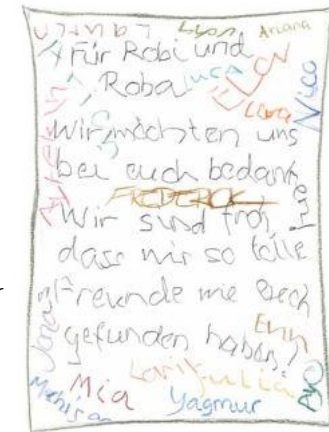 Lauren Lynn Ariana
Für Robi und
Roba Luca
Clara Nico
Wir möchten uns
bei euch bedank
FREDERICK
Wir sind froj
dass wir so tolle
Freunde wie Eech
gefunden haben!
Jonas Emn
Mia Larif Julia Ayo
Yagmur